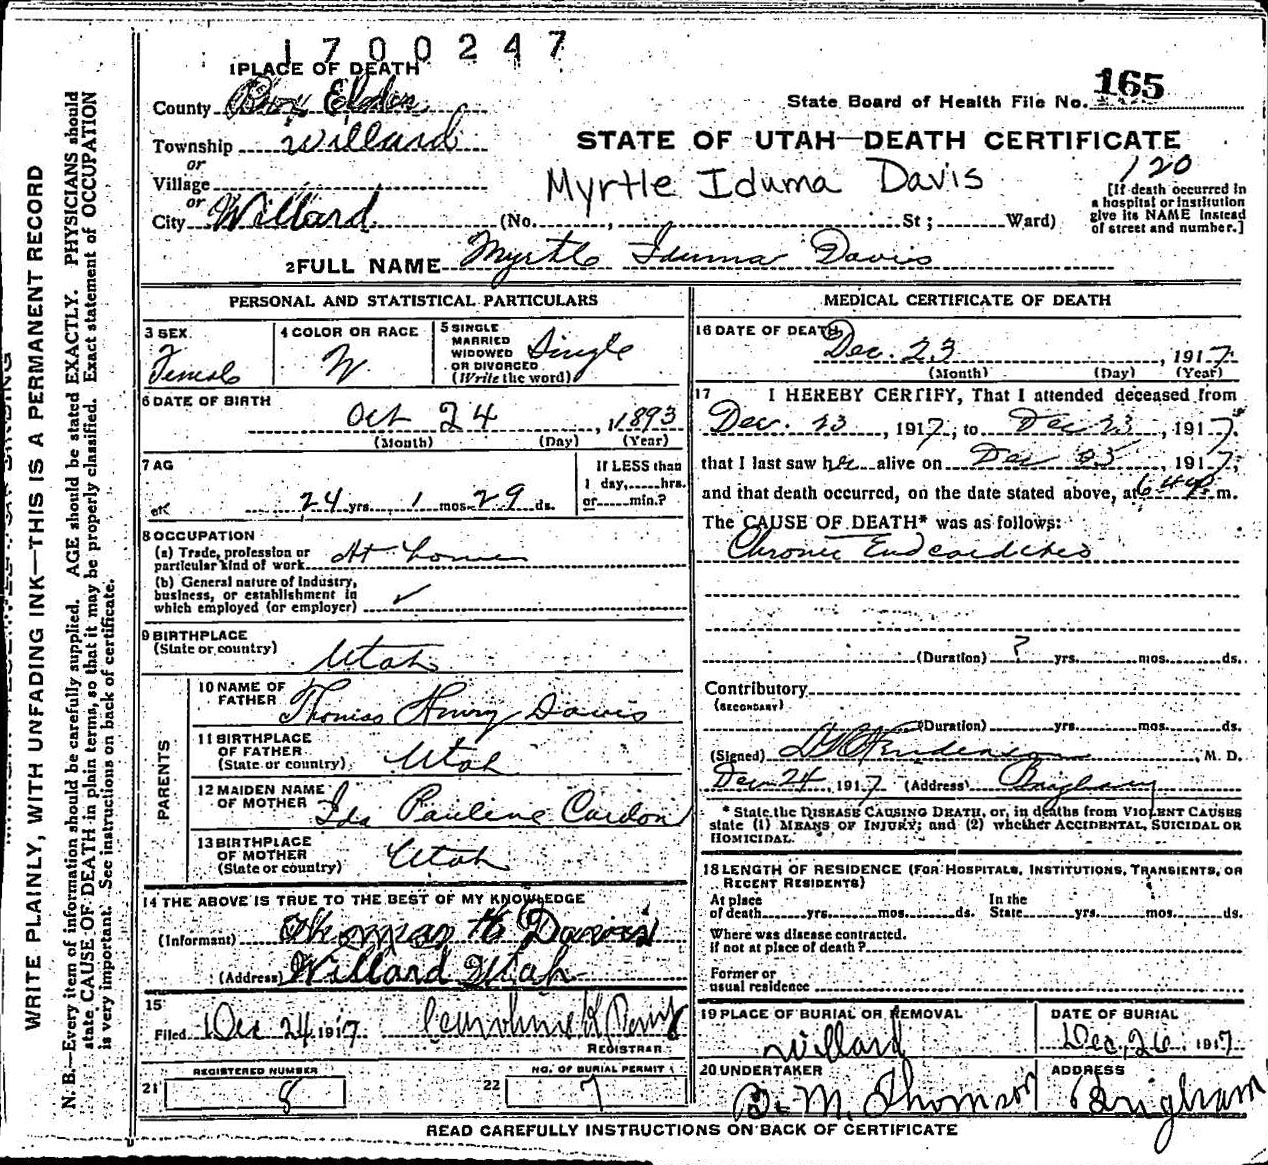 1700247
1 PLACE OF DEATH
County Box Elder
State Board of Health File No. 165
Township Willard
STATE OF UTAH—DEATH CERTIFICATE
or
Village
Myrtle Iduma Davis
120
[If death occurred in
a hospital or institution
give its NAME instead
of street and number.]
or
City Willard (No. , St; Ward)
2 FULL NAME Myrtle Iduma Davis
PERSONAL AND STATISTICAL PARTICULARS
3 SEX
Female
4 COLOR OR RACE
W
5 SINGLE
MARRIED
WIDOWED
OR DIVORCED
(Write the word)
Single
6 DATE OF BIRTH
Oct 24, 1893
(Month) (Day) (Year)
7 AG
24 yrs. 1 mos. 29 ds.
If LESS than
1 day, hrs.
or min.?
8 OCCUPATION
(a) Trade, profession or
particular kind of work At home
(b) General nature of Industry,
business, or establishment in
which employed (or employer) ✓
9 BIRTHPLACE
(State or country)
Utah
PARENTS
10 NAME OF
FATHER
Thomas Henry Davis
11 BIRTHPLACE
OF FATHER
(State or country)
Utah
12 MAIDEN NAME
OF MOTHER
Ida Pauline Cardon
13 BIRTHPLACE
OF MOTHER
(State or country)
Utah
14 THE ABOVE IS TRUE TO THE BEST OF MY KNOWLEDGE
(Informant) Thomas H Davis
(Address) Willard Utah
15
Filed Dec 24 1917. Perry
REGISTRAR
REGISTERED NUMBER
21 8
NO. OF BURIAL PERMIT
22 7
MEDICAL CERTIFICATE OF DEATH
16 DATE OF DEATH
Dec. 23, 1917.
(Month) (Day) (Year)
17 I HEREBY CERTIFY, That I attended deceased from
Dec. 23, 1917, to Dec 23, 1917.
that I last saw her alive on Dec, 1917,
and that death occurred, on the date stated above, at m.
The CAUSE OF DEATH* was as follows:
Chronic Endcarditis
(Duration) ? yrs. mos. ds.
Contributory
(SECONDARY)
(Duration) yrs. mos. ds.
(Signed) Henderson, M. D.
Dec 24, 1917 (Address) Brigham
* State the DISEASE CAUSING DEATH, or, in deaths from VIOLENT CAUSES
state (1) MEANS OF INJURY; and (2) whether ACCIDENTAL, SUICIDAL OR
HOMICIDAL.
18 LENGTH OF RESIDENCE (FOR HOSPITALS, INSTITUTIONS, TRANSIENTS, OR
RECENT RESIDENTS)
At place
of death yrs. mos. ds.
In the
State yrs. mos. ds.
Where was disease contracted.
if not at place of death?
Former or
usual residence
19 PLACE OF BURIAL OR REMOVAL
Willard
DATE OF BURIAL
Dec, 26, 1917
20 UNDERTAKER
B. M. Thomson
ADDRESS
Brigham
READ CAREFULLY INSTRUCTIONS ON BACK OF CERTIFICATE
WRITE PLAINLY, WITH UNFADING INK—THIS IS A PERMANENT RECORD
N. B.—Every item of information should be carefully supplied. AGE should be stated EXACTLY. PHYSICIANS should
state CAUSE OF DEATH in plain terms, so that it may be properly classified. Exact statement of OCCUPATION
is very important. See instructions on back of certificate.